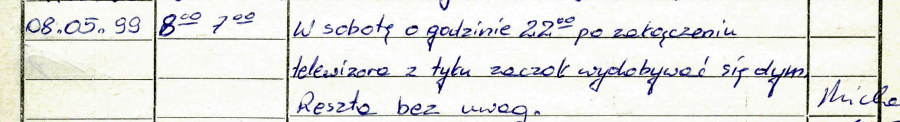 08.05.99 8⁰⁰ 7⁰⁰ W sobotę o godzinie 22⁰⁰ po załączeniu
telewizora z tyłu zaczoł wydobywać się dym.
Reszta bez uwag.